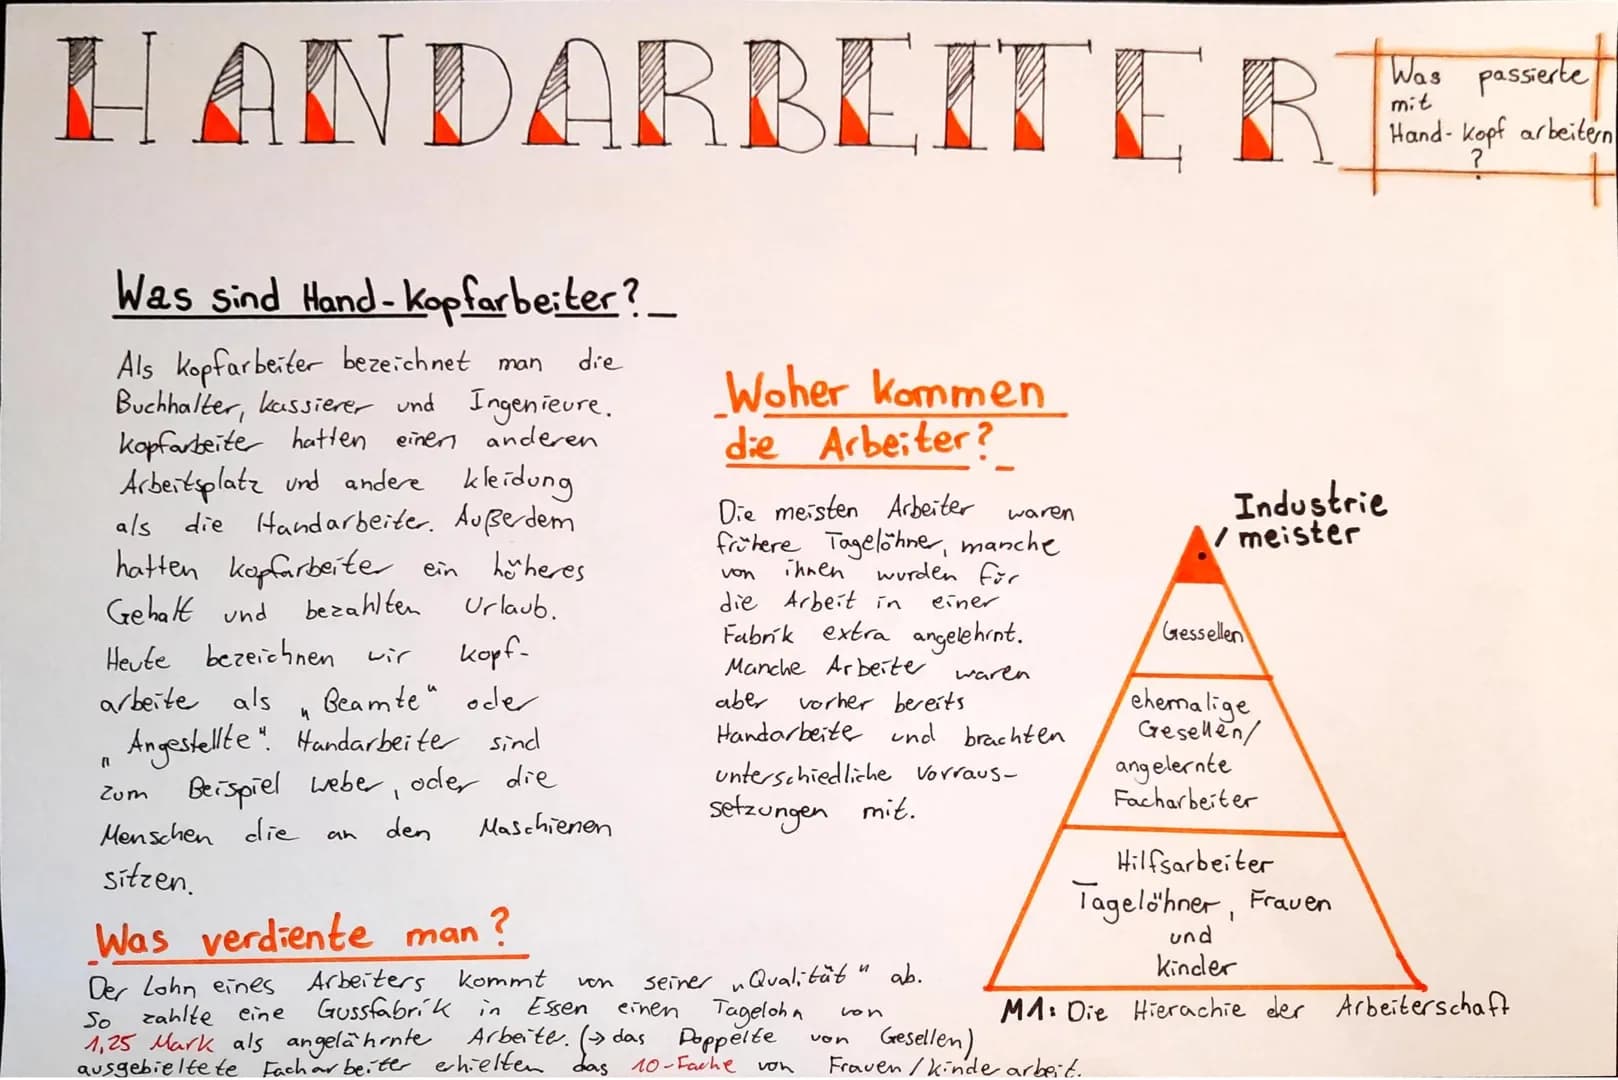 HANDARBEITER
Was passierte
mit
Hand-Kopf arbeitern
?
Was sind Hand-Kopfarbeiter?
Als Kopfarbeiter bezeichnet man die
Buchhalter, Kassierer und Ingenieure.
Kopfarbeiter hatten einen anderen
Arbeitsplatz und andere Kleidung
als die Handarbeiter. Außerdem
hatten Kopfarbeiter ein höheres
Gehalt und bezahlten Urlaub.
Heute bezeichnen wir Kopf-
arbeite als „Beamte“ oder
„Angestellte“. Handarbeiter sind
zum Beispiel Weber, oder die
Menschen die an den Maschienen
sitzen.
Woher kommen
die Arbeiter?
Die meisten Arbeiter waren
frühere Tagelöhner, manche
von ihnen wurden für
die Arbeit in einer
Fabrik extra angelehrnt.
Manche Arbeiter waren
aber vorher bereits
Handarbeite und brachten
unterschiedliche Vorraus-
setzungen mit.
Industrie
meister
Gessellen
ehemalige
Gesellen/
angelernte
Facharbeiter
Hilfsarbeiter
Tagelöhner, Frauen
und
Kinder
M1: Die Hierachie der Arbeiterschaft
Was verdiente man?
Der Lohn eines Arbeiters kommt von seiner „Qualität“ ab.
So zahlte eine Gussfabrik in Essen einen Tagelohn von
1,25 Mark als angelährnte Arbeite. (→ das Doppelte von Gesellen)
ausgebieltete Facharbeiter erhielten das 10-Fache von Frauen/Kinderarbeit.